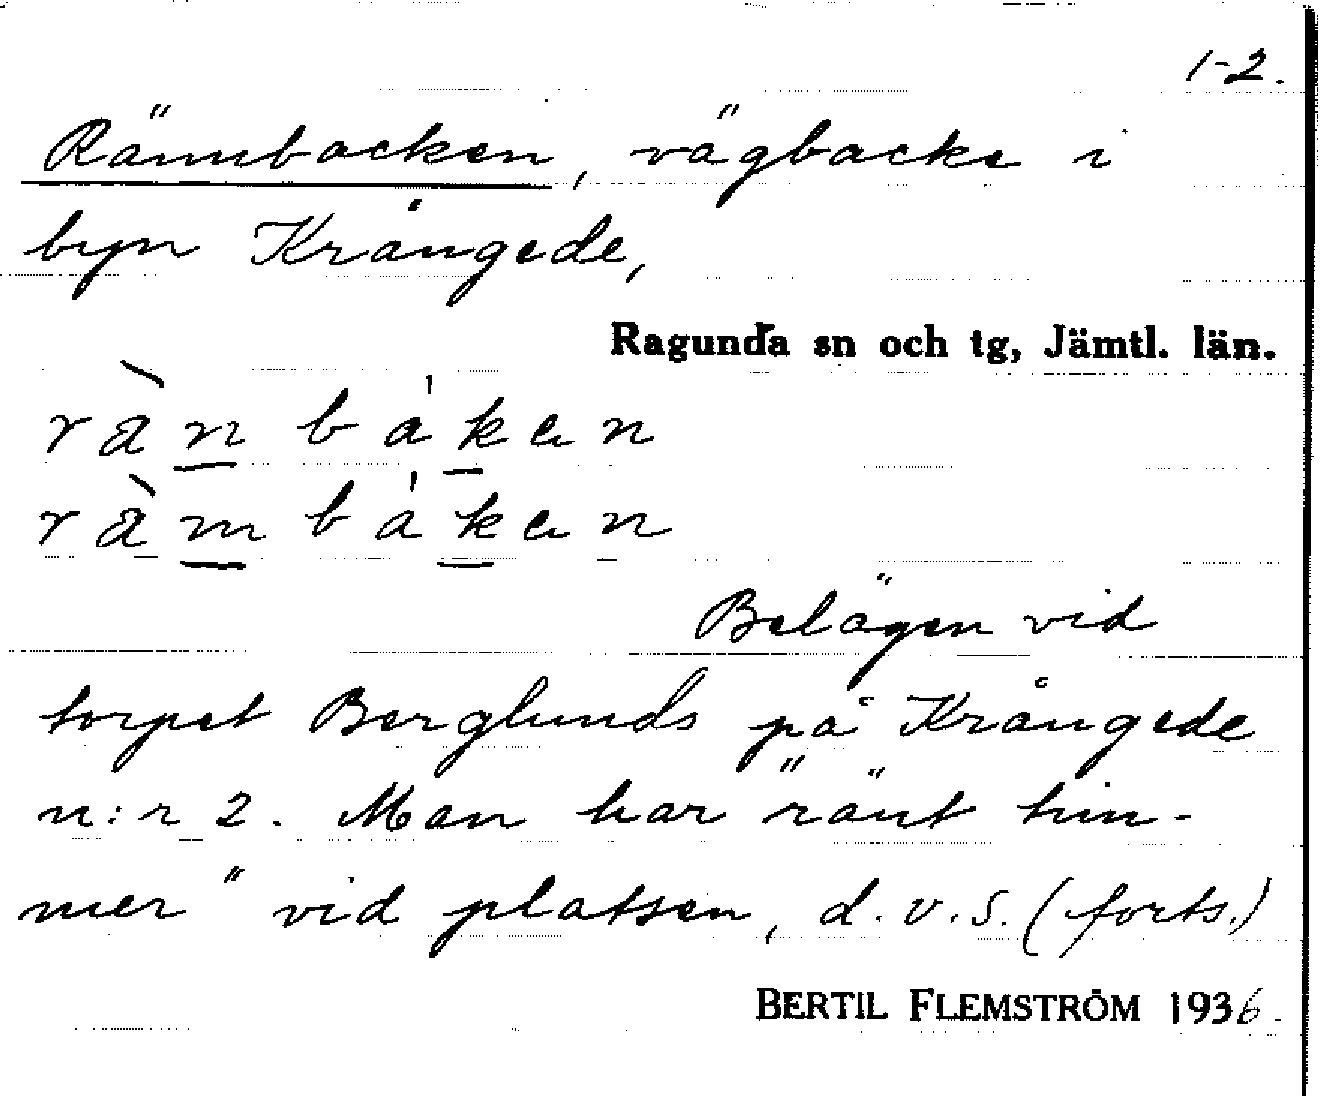 1-2.
Rännbacken, vägbacke i
byn Krångede,
Ragunda sn och tg, Jämtl. län.
rä̀n báken
rä̀m báken
Belägen vid
torpet Berglunds på Krångede
n:r 2. Man har "ränt tim-
mer" vid platsen, d.v.s. (forts.)
BERTIL FLEMSTRÖM 1936.